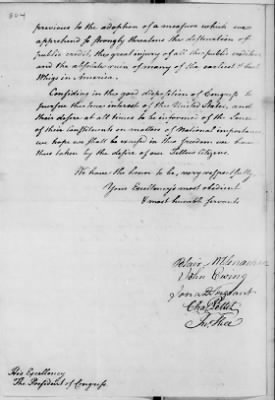 previous to the adoption of a measure which was
apprehend so strongly threatens the destruction of
public credit, the great injury of all the public creditors
and the absolute ruin of many of the earliest & best
Whigs in America.
Confiding in the good disposition of Congress to
pursue the true interest of the United States, and
their desire at all times to be informed of the Sense
of their Constituents on matters of National importance
we hope we shall be excused in this freedom we have
thus taken by the desire of our Fellow Citizens.
We have the honor to be, very respectfully
Your Excellency's most obedient
& most humble Servants
Blair McClenachan
John Ewing
Jona D Sergeant
Chas Pettit
His Excellency
The President of Congress